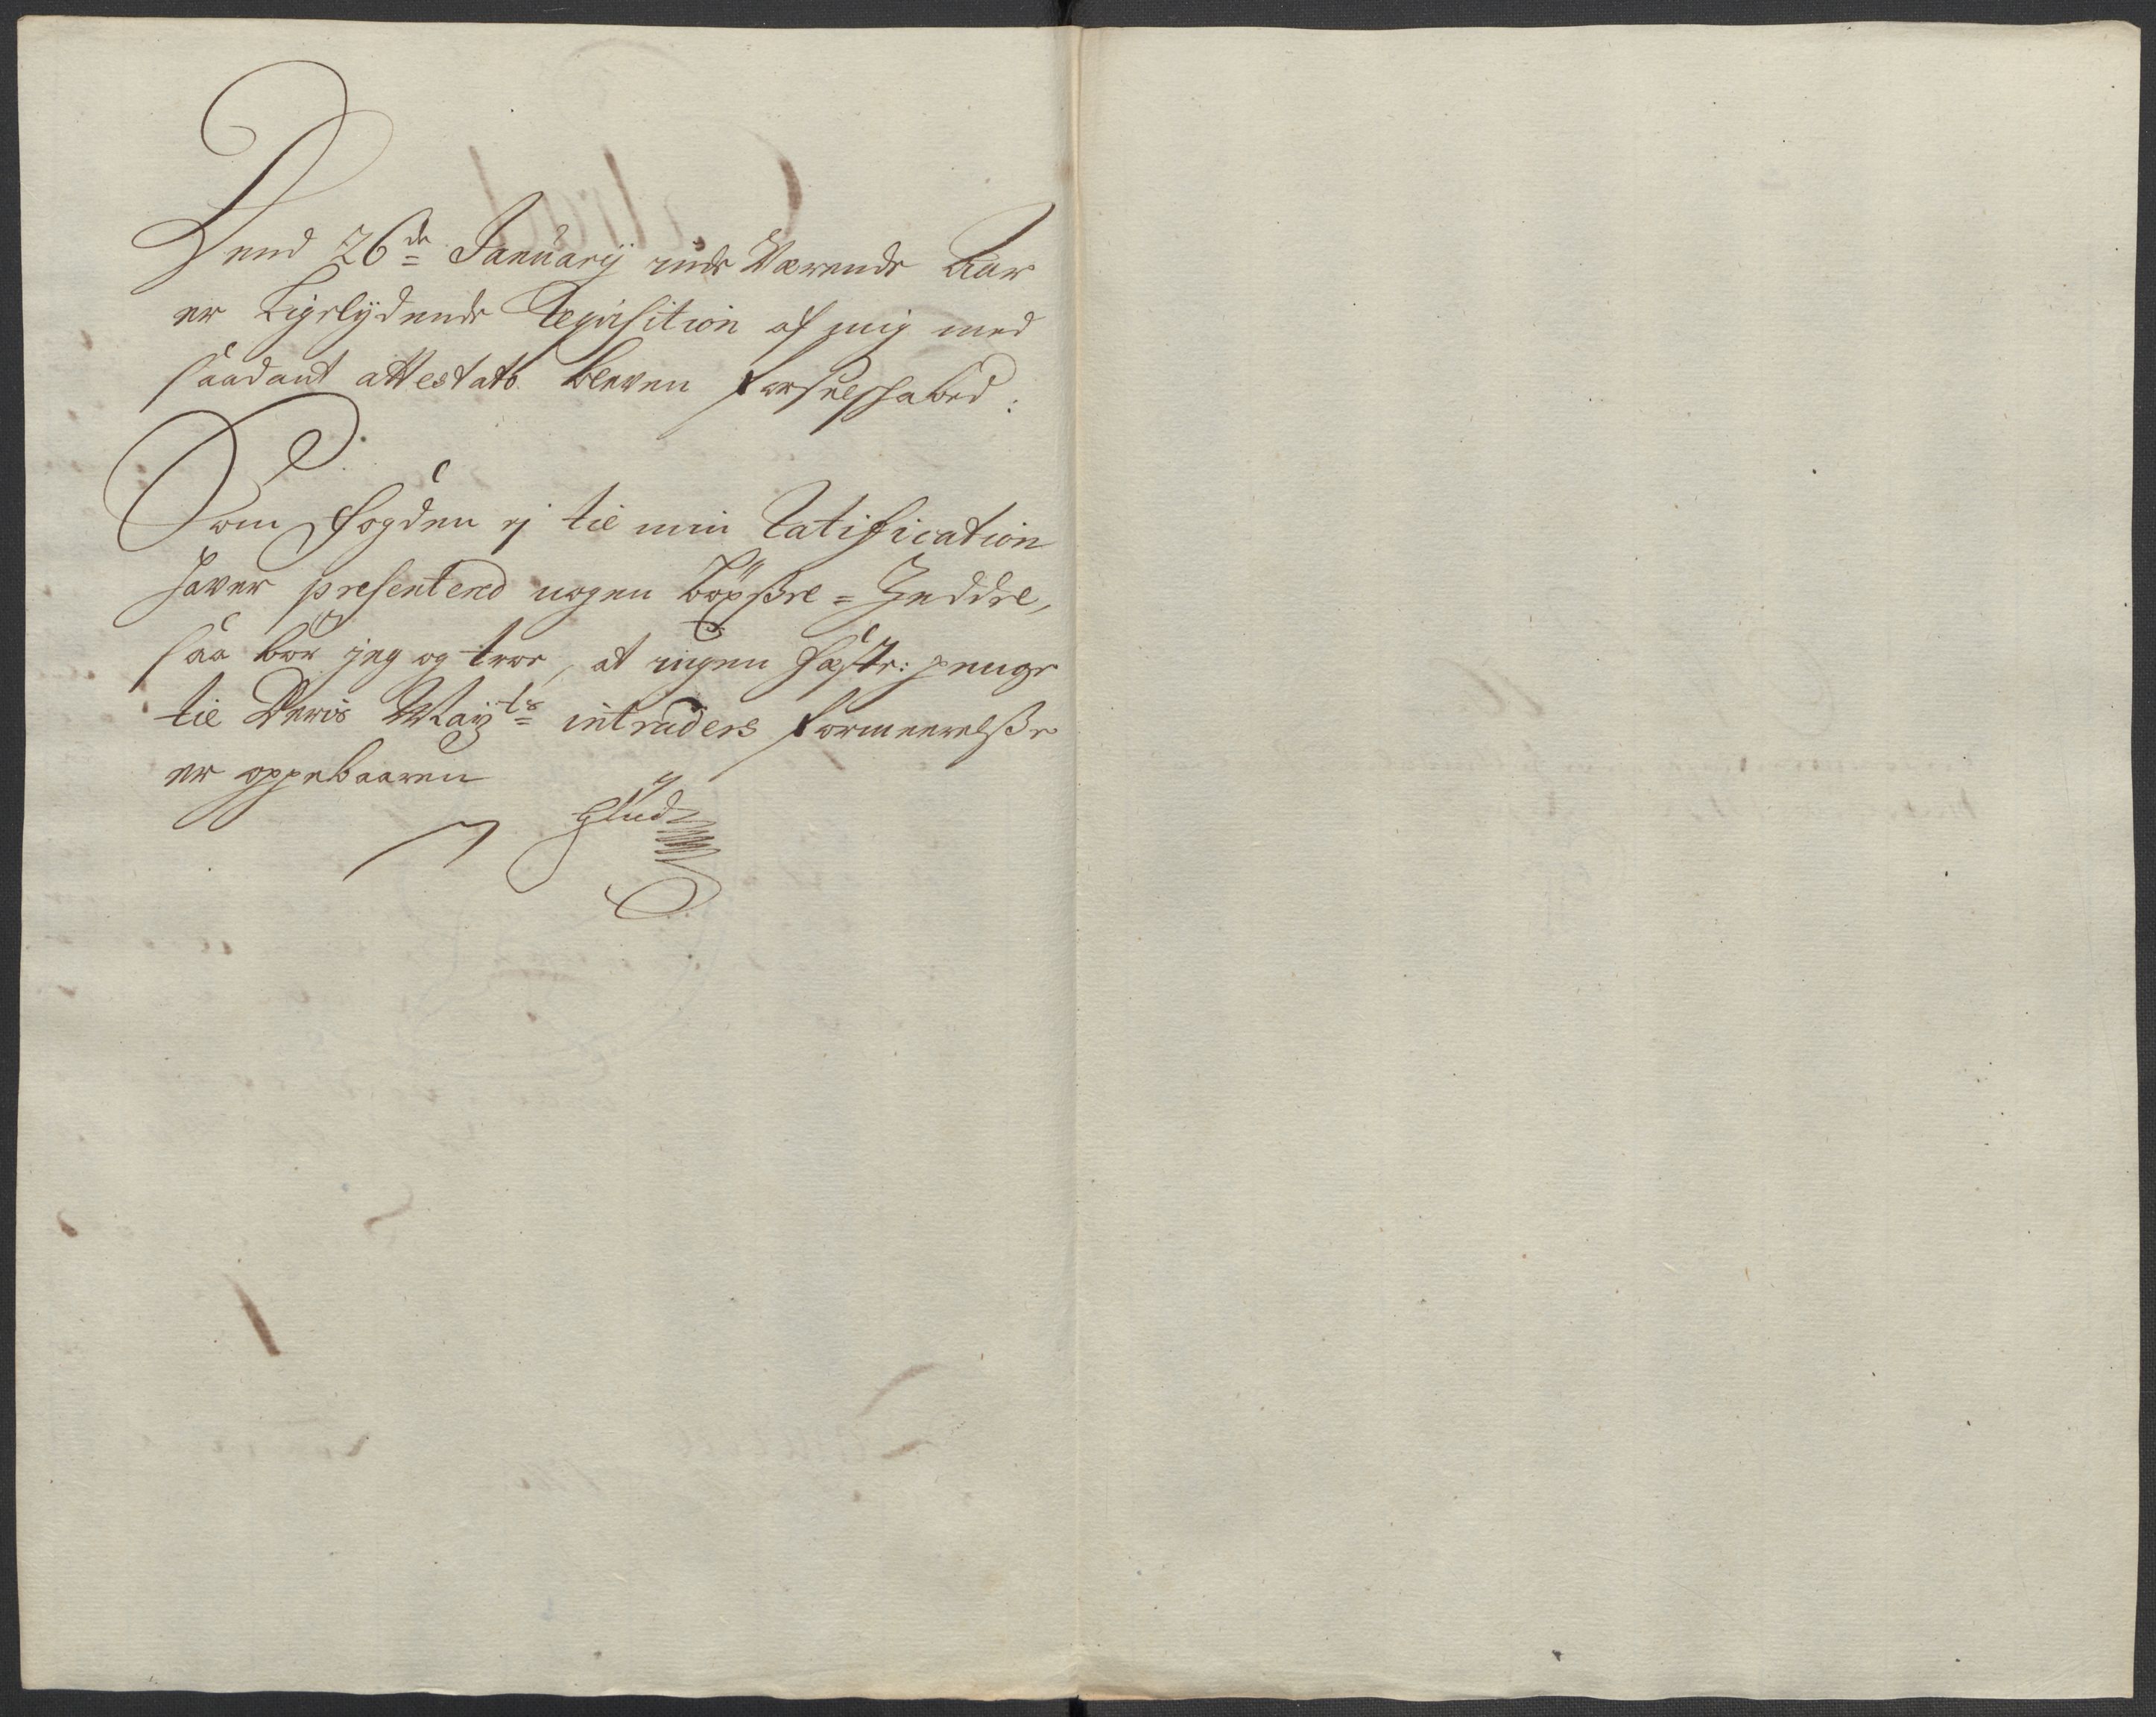 Dend 26de January inde Værende Aar
er Ligelydende Reqvisition af mig med
saadant attestats bleven forselschabed:
Som Fogden ej til min Ratification
haver presenterd nogen böxsle=Zeddel,
saa bör jeg og troe, at ingen fæste: penge
til Deris Mayts intraders formeerelsse
er oppebaaren
Glud